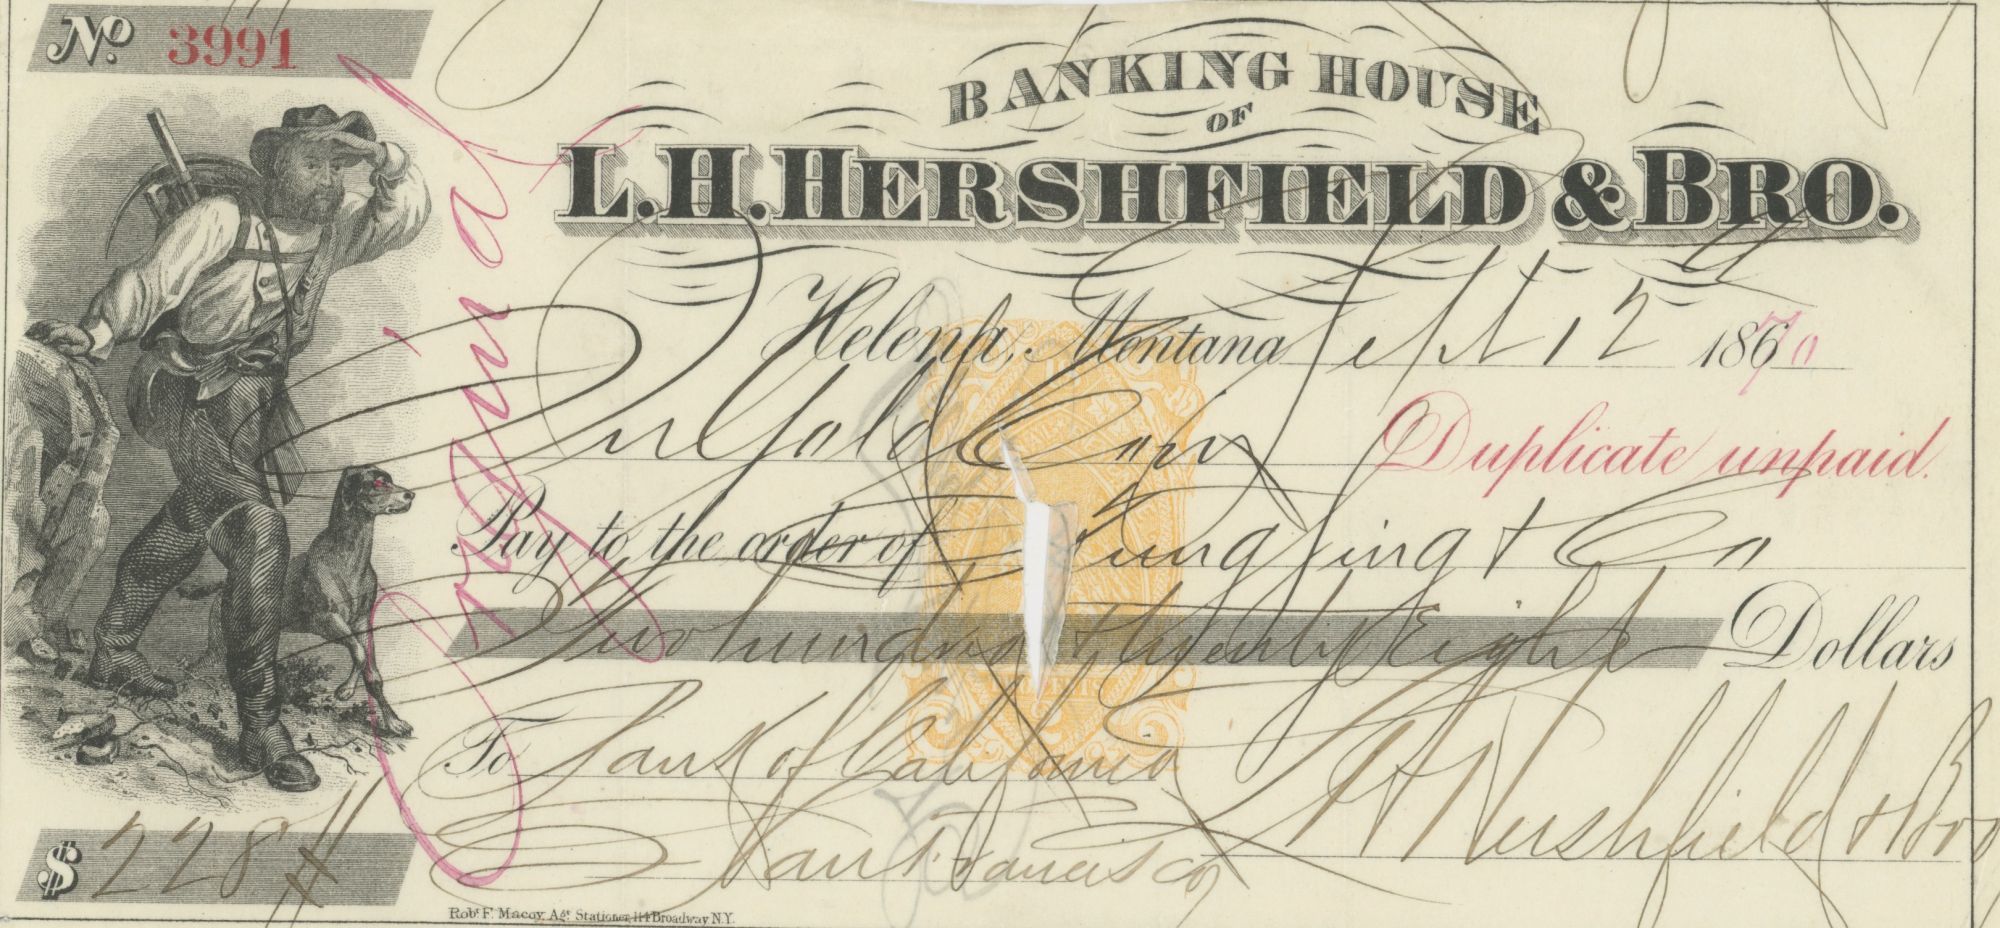 No. 3991
BANKING HOUSE
OF
L.H. HERSHFIELD & BRO.
Helena, Montana Sept 12 1870
In Gold Coin Duplicate unpaid.
Pay to the order of Tung Sing & Co
Two hundred & twenty Eight Dollars
To Bank of California
San Francisco
L H Hershfield & Bro
$ 228
Original
Robt. F. Macoy, Agt. Stationer, 114 Broadway N.Y.